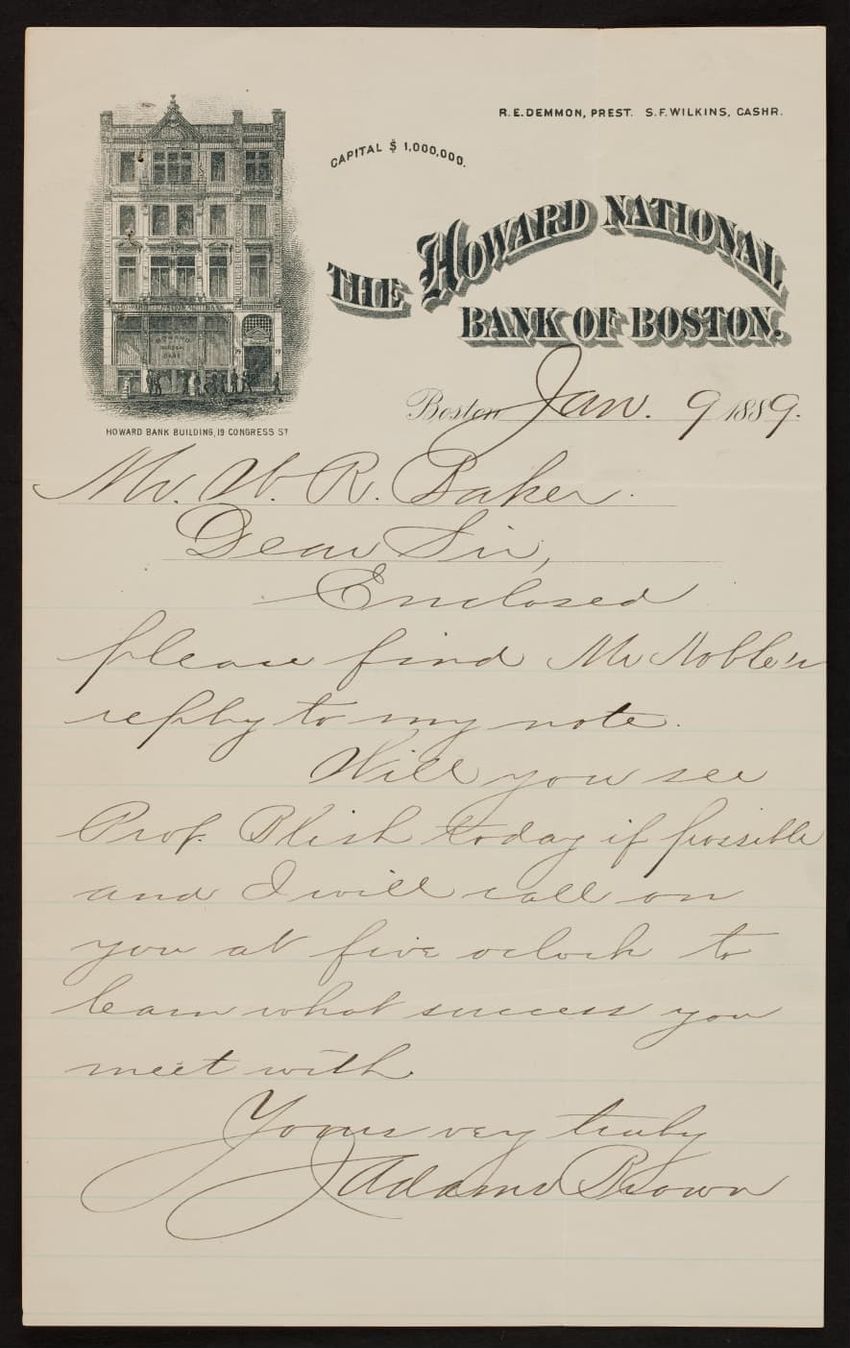 R. E. DEMMON, PREST. S. F. WILKINS, CASHR.
CAPITAL $ 1,000,000.
THE HOWARD NATIONAL
BANK OF BOSTON.
HOWARD BANK BUILDING, 19 CONGRESS ST
Boston Jan. 9 1889.
Mr. W. R. Baker.
Dear Sir,
Enclosed
please find Mr Noble's
reply to my note.
Will you see
Prof. Blish today if possible
and I will call on
you at five oclock to
learn what success you
meet with.
Yours very truly
J Adams Brown